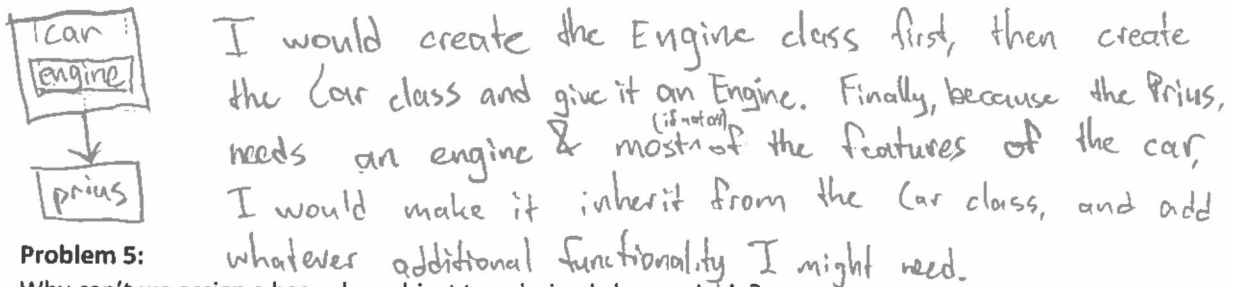 car
engine
prius
I would create the Engine class first, then create
the Car class and give it an Engine. Finally, because the Prius,
needs an engine & most (if not all) of the features of the car,
I would make it inherit from the Car class, and add
whatever additional functionality I might need.
Problem 5: